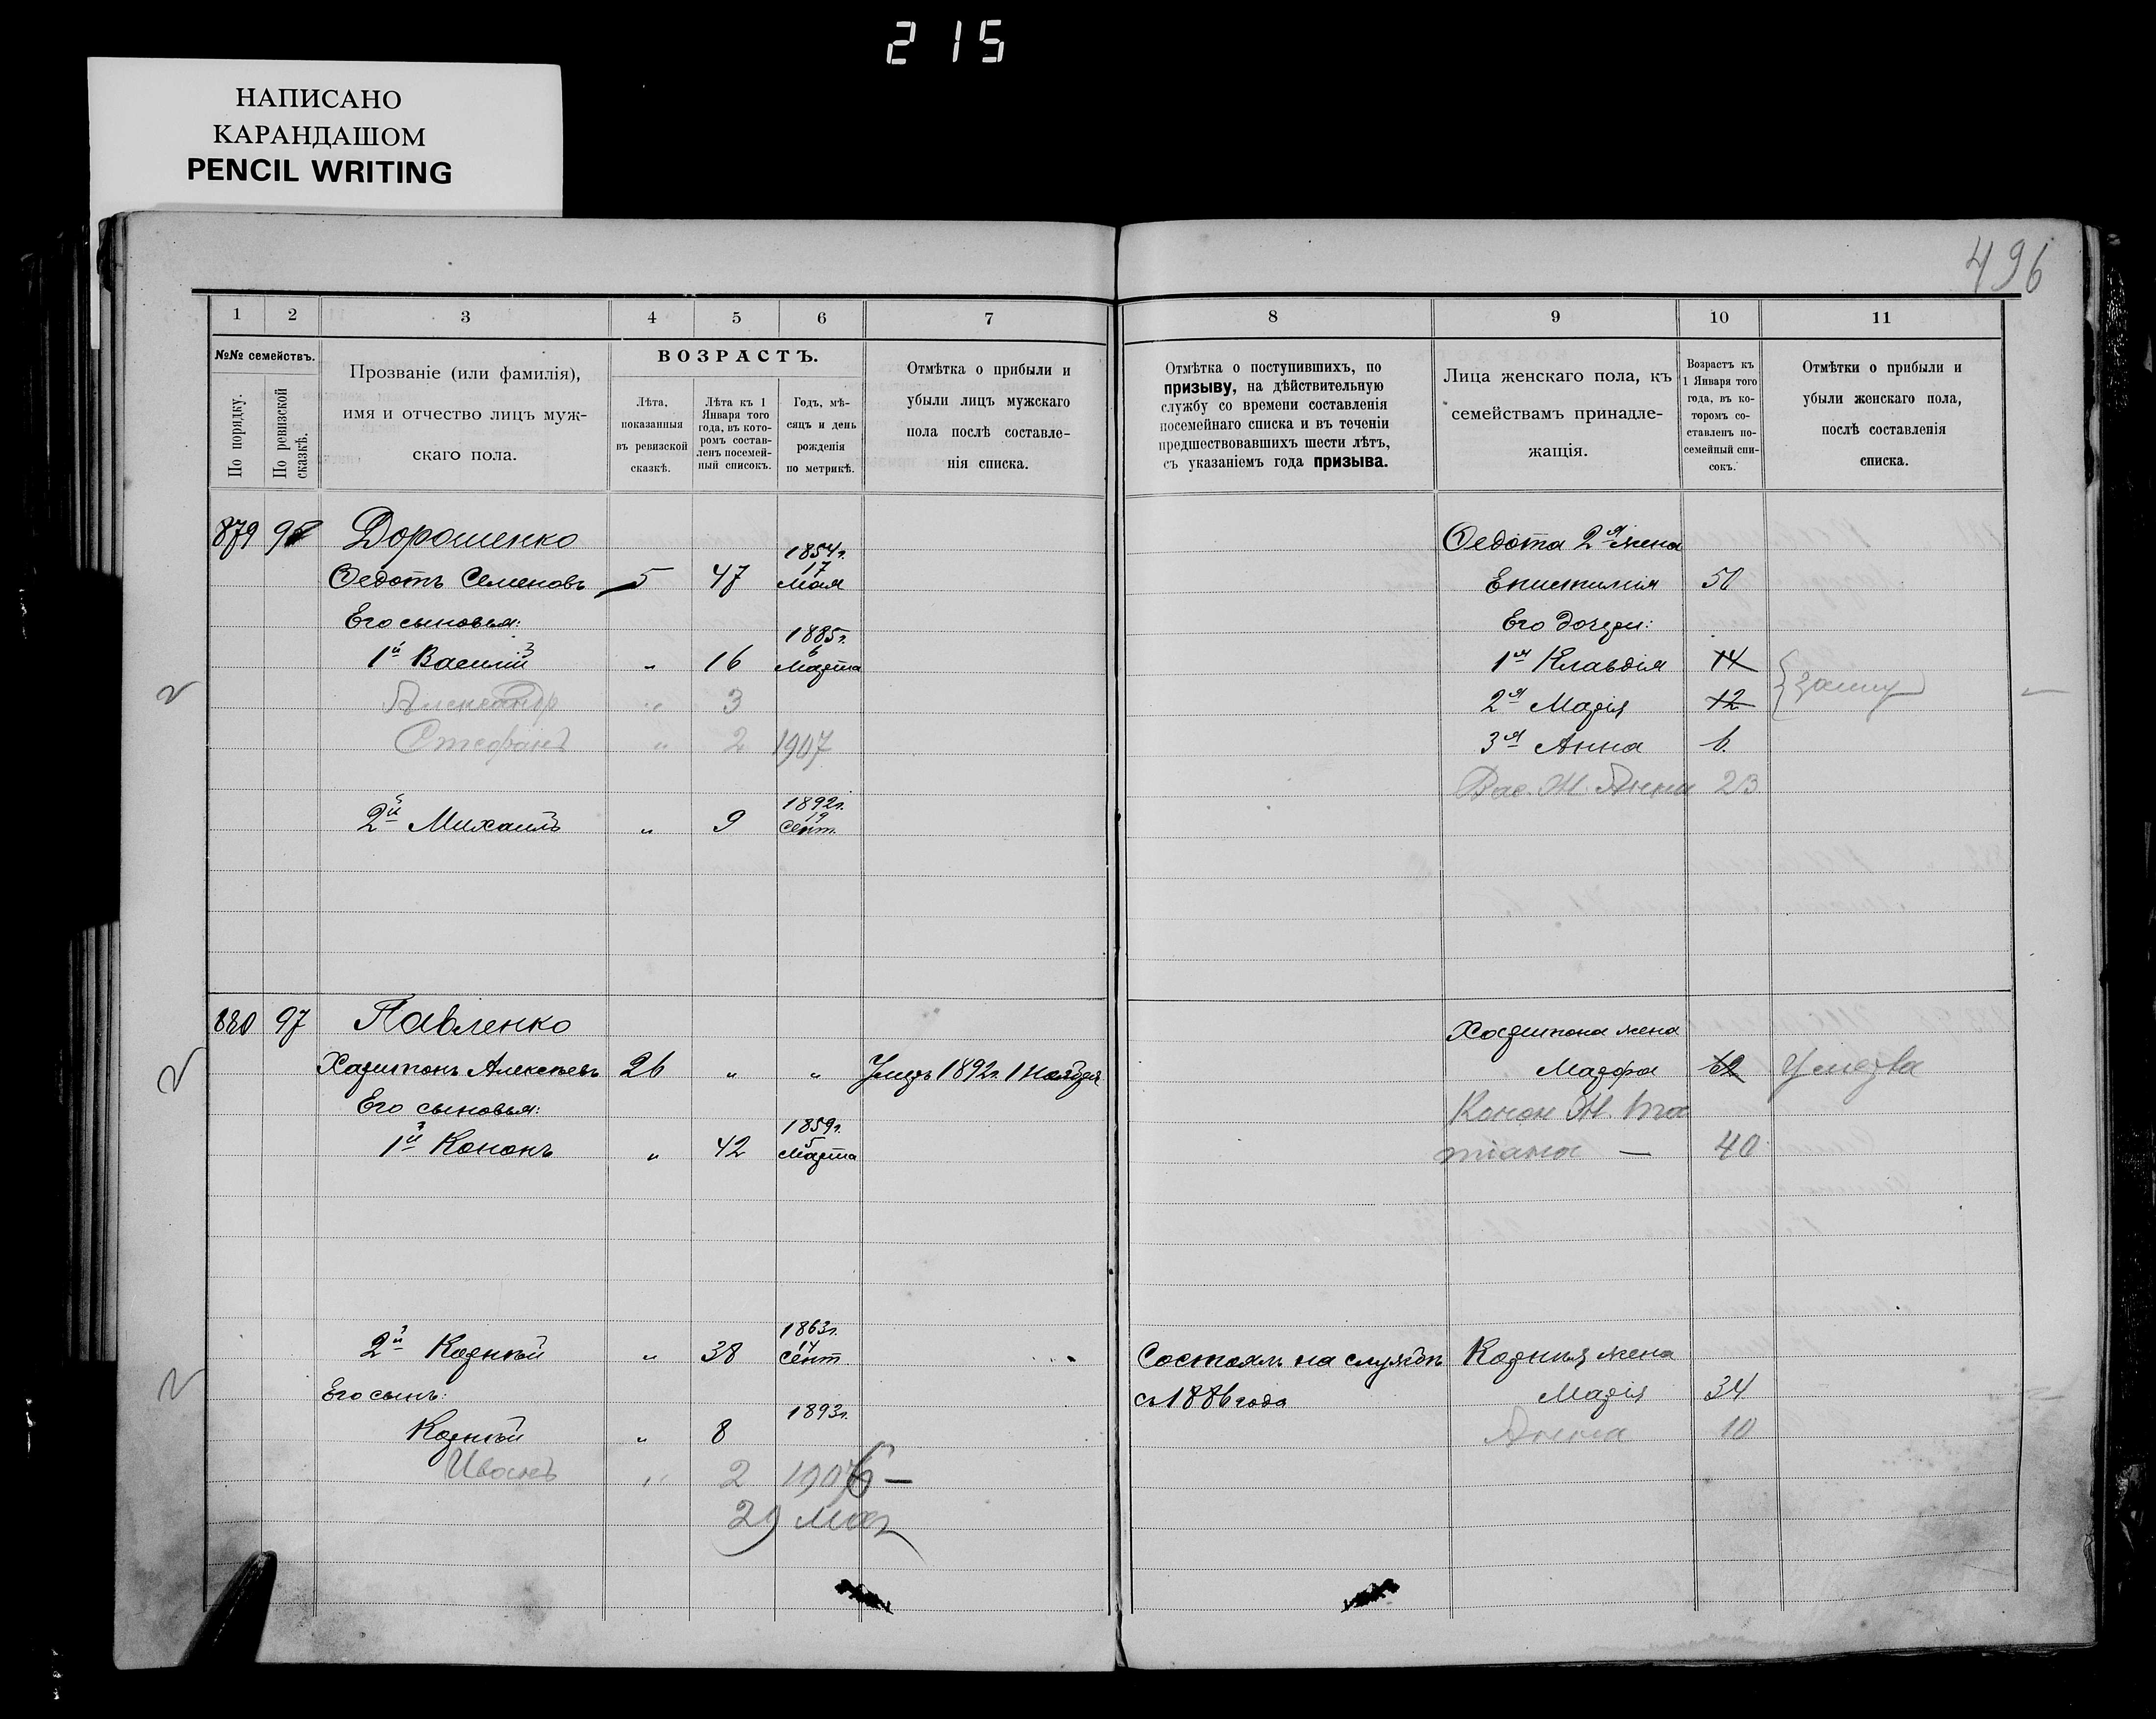 215
НАПИСАНО
КАРАНДАШОМ
PENCIL WRITING
496
1 2 3 4 5 6 7 8 9 10 11
№№ семействъ.
По порядку.
По ревизской сказкѣ.
Прозваніе (или фамилія),
имя и отчество лицъ муж-
скаго пола.
ВОЗРАСТЪ.
Лѣта,
показанныя
въ ревизской
сказкѣ.
Лѣта къ 1
Января того
года, въ кото-
ромъ состав-
ленъ посемей-
ный списокъ.
Годъ, мѣ-
сяцъ и день
рожденія
по метрикѣ.
Отмѣтка о прибыли и
убыли лицъ мужскаго
пола послѣ составле-
нія списка.
Отмѣтка о поступившихъ, по
призыву, на дѣйствительную
службу со времени составленія
посемейнаго списка и въ теченіи
предшествовавшихъ шести лѣтъ,
съ указаніемъ года призыва.
Лица женскаго пола, къ
семействамъ принадле-
жащія.
Возрастъ къ
1 Января того
года, въ ко-
торомъ со-
ставленъ по-
семейный спи-
сокъ.
Отмѣтки о прибыли и
убыли женскаго пола,
послѣ составленія
списка.
879 Дорошенко Ѳедота 2я жена
Ѳедотъ Семеновъ 5 47 1854г. 17 Мая Епистимія 50
Его сыновья: Его дочери:
1й Василій 3 „ 16 1885г. 6 Марта 1я Клавдія 14
Александр „ 3 2я Марія 12 замуж
Стефанъ „ 2 1907 3я Анна 6.
Вас. Ж. Анна 23
2й Михаилъ „ 9 1892г. 19 Сент.
880 97 Павленко Харитона жена
Харитонъ Алексѣевъ 26 „ „ Умеръ 1892г. 1 Ноября Марфа 62 Умерла
Его сыновья: Конон Ж. Та
1й Кононъ „ 42 1859г. 5 Марта тіана — 40
2й Корнѣй „ 38 1863г. 14 Сент Состоялъ на службѣ Корнѣя жена
Его сынъ: съ 1886 года Марія 34
Корнѣй „ 8 1893г. Анна 10
Иванъ „ 2 1906 —
29 мая